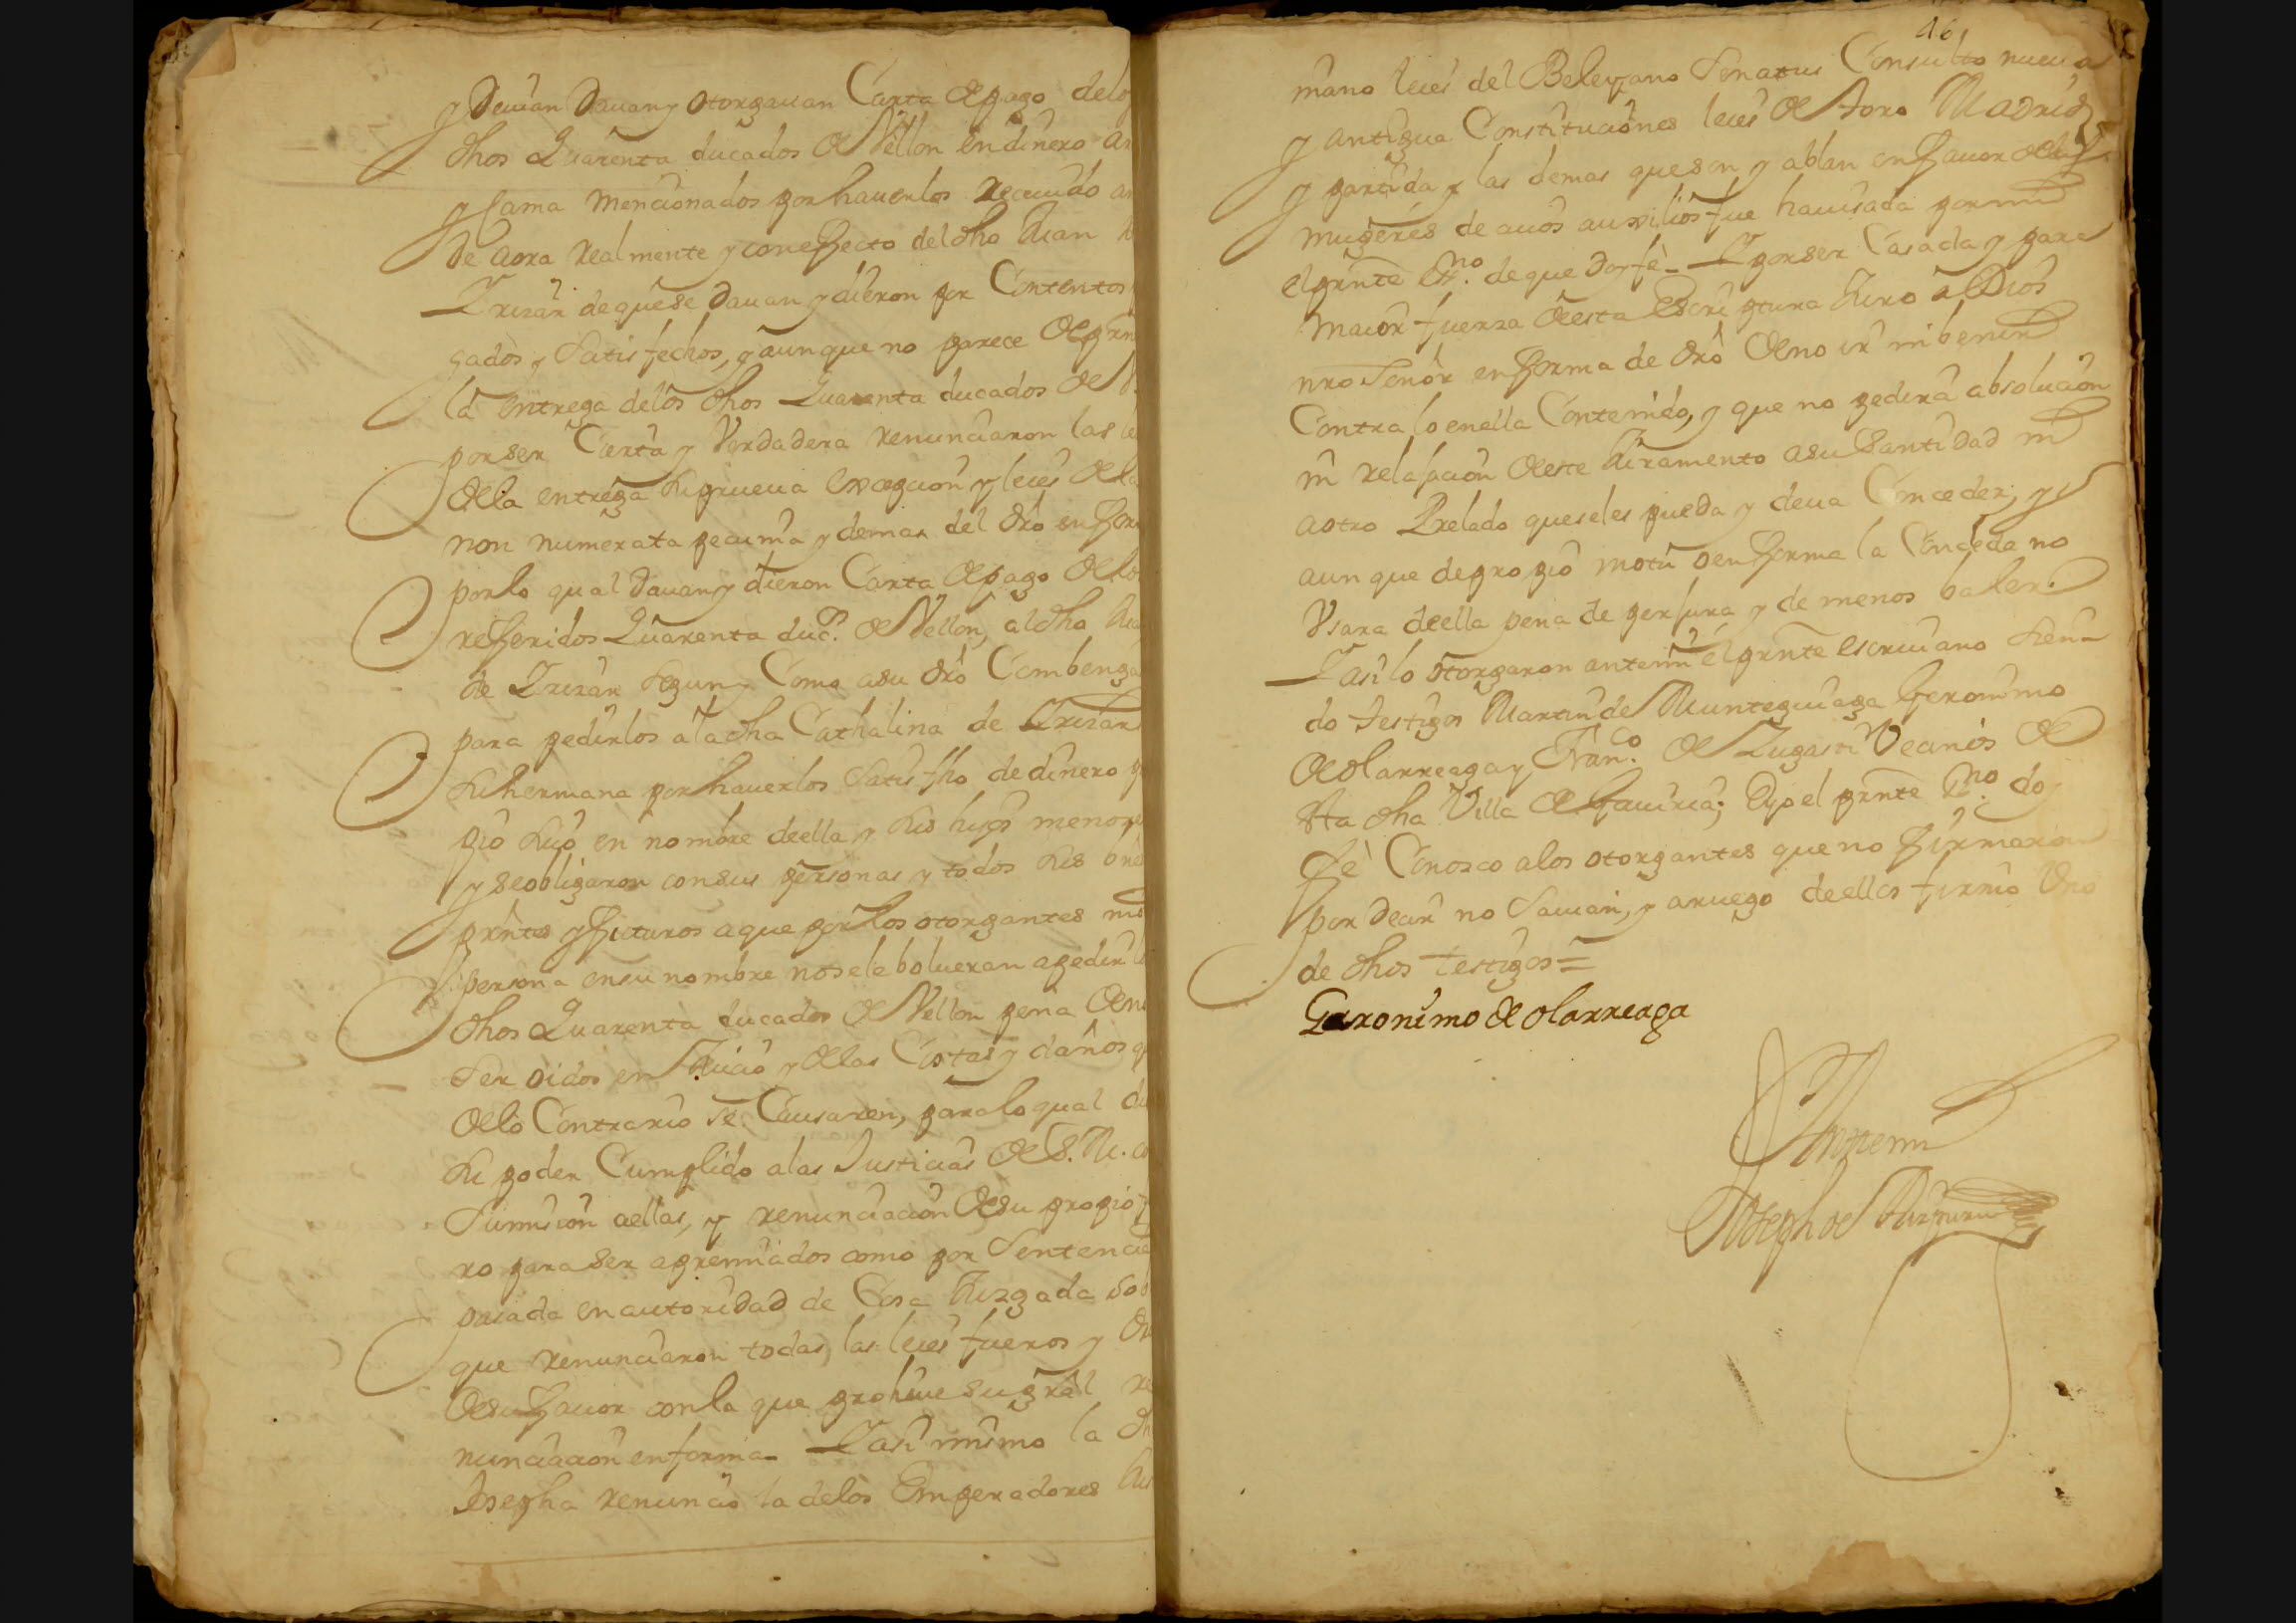 y Decian Davan y otorgavan Carta de pago delos
dhos Quarenta ducados de Vellon en dinero ar
y Cama mencionados por haverlos Recevido an
de aora Realmente y con effecto del dho Juan
Irizar de que se davan y dieron por Contentos
gados y Satisfechos, y aunque no parece de prn
la entrega delos dhos Quarenta ducados de V.
por ser Cierta y Verdadera renunciaron las le
dela entrega su prueva excepcion y leies de la
non numerata pecunia y demas del dro en for
por lo qual davan y dieron Carta de pago de los
refferidos Quarenta duc.s de Vellon, al dho Jua
de Irizar segun y Como a su dro Combenga
para pedirlos a la dha Cathalina de Irizar
su hermana por haverlos Satisfho de dinero p
pio suio en nombre de ella y sus hijos menores
y se obligaron con sus personas y todos sus bne
prntes y futuros a que por los otorgantes ni o
persona en su nombre no se le bolveran a pedir l
dhos Quarenta ducados de Vellon pena de no
ser oidos en Juicio y de las Costas y daños q
de lo Contrario se Causaren, para lo qual di
su poder Cumplido a las Justicias de S. M. co
Sumision a ellas, y renunciacion de su propio f
ro para ser apremiados como por Sentencia
pasada en autoridad de Cosa Juzgada sob
que renunciaron todas las leies fueros y dr
de su favor con la que prohive su gral re
nunciacion en forma_ Y asi mismo la dh
Josepha renuncio la delos Emperadores Jus
46
tiniano leies del Beleyano Senatus Consulto nueva
y antigua Constituciones leies de Toro Madrid
y partida y las demas que son y ablan en favor delas
mugeres de cuios auxilios fue havisada por mi
el prnte esno. de que doy fe_ Y por ser Casada y para
maior fuerza de esta Escriptura Juro a Dios
nro Señor en forma de dro de no ir ni benir
Contra lo en ella Contenido, y que no pedira absolucion
ni relajacion de este Juramento a su Santidad ni
a otro Prelado que se les pueda y deva Conceder, y
aun que de propio motu o en forma la Conceda no
Usara de ella pena de perjura y de menos baler.
Y asi lo otorgaron ante mi el prnte escrivano sien-
do testigos Martin de Munteguiaga Geronimo
de olarreaga y Fran.co de Lugasti Vecinos de
sta dha Villa de Gaviria; E yo el prnte esno. doy
fe Conosco a los otorgantes que no firmaron
por decir no Savian, y a ruego de ellos firmo Uno
de dhos testigos=
Geronimo de olarreaga
Ante mi
Joseph de